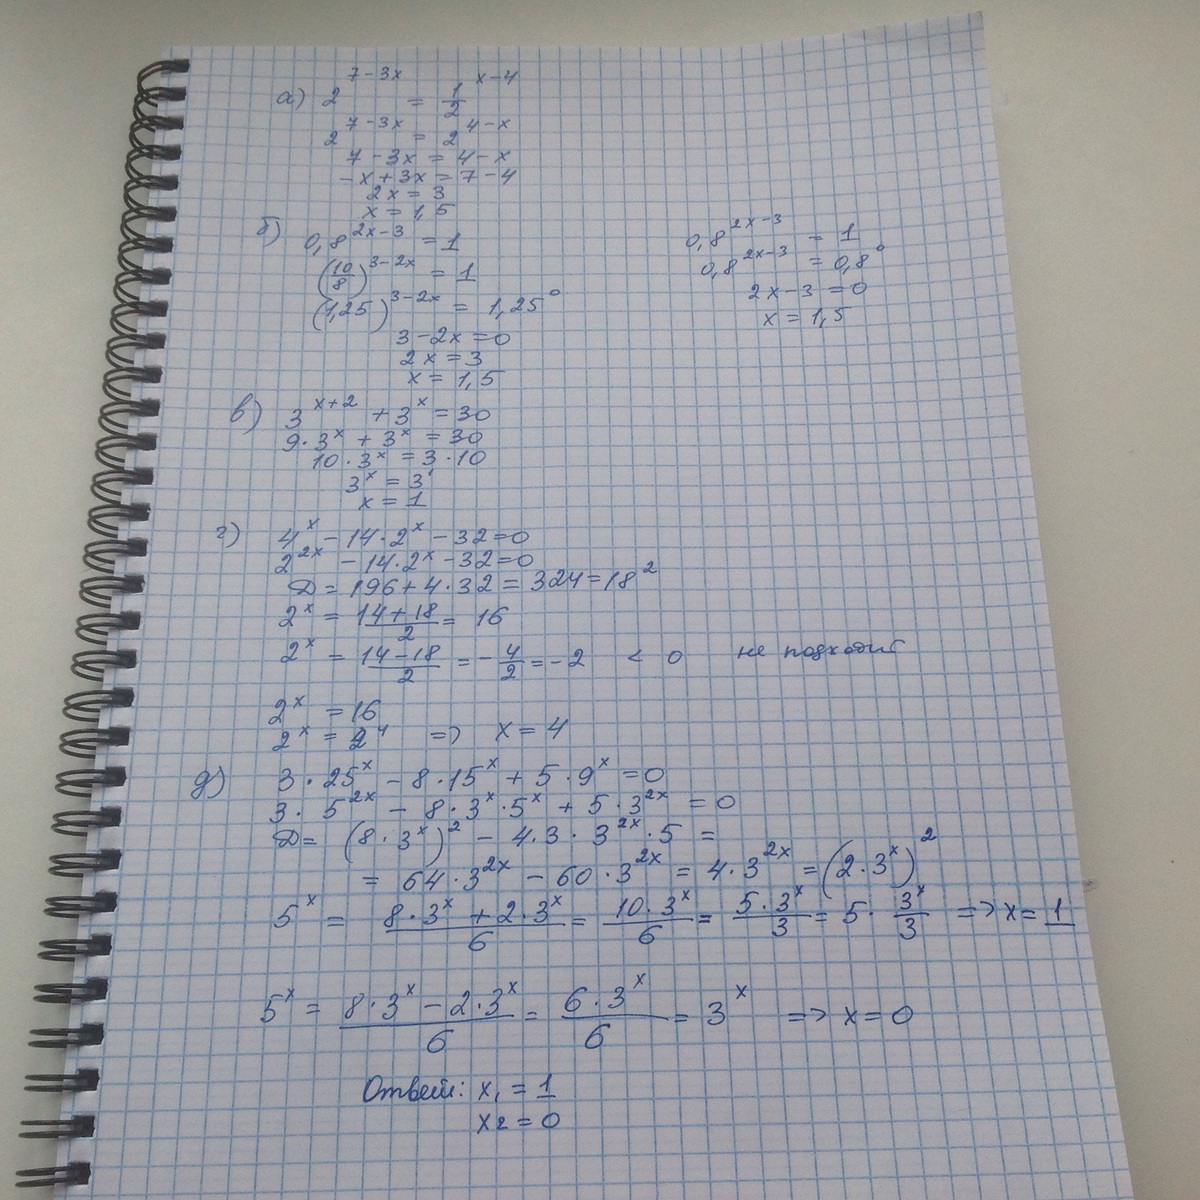 а) 2^(7-3x) = 1/2^(x-4)
2^(7-3x) = 2^(4-x)
7-3x = 4-x
-x+3x = 7-4
2x = 3
x = 1,5
б) 0,8^(2x-3) = 1
(10/8)^(3-2x) = 1
(1,25)^(3-2x) = 1,25^0
3-2x=0
2x=3
x = 1,5
0,8^(2x-3) = 1
0,8^(2x-3) = 0,8^0
2x-3=0
x=1,5
в) 3^(x+2) + 3^x = 30
9·3^x + 3^x = 30
10·3^x = 3·10
3^x = 3^1
x = 1
г) 4^x - 14·2^x - 32=0
2^(2x) - 14·2^x - 32=0
Д = 196+4·32 = 324=18^2
2^x = (14+18)/2 = 16
2^x = (14-18)/2 = -4/2 = -2 < 0 не подходит
2^x = 16
2^x = 2^4 => x = 4
д) 3·25^x - 8·15^x + 5·9^x = 0
3·5^(2x) - 8·3^x·5^x + 5·3^(2x) = 0
Д= (8·3^x)^2 - 4·3·3^(2x)·5 =
= 64·3^(2x) - 60·3^(2x) = 4·3^(2x) = (2·3^x)^2
5^x = (8·3^x + 2·3^x)/6 = (10·3^x)/6 = (5·3^x)/3 = 5·3^x/3 => x = 1
5^x = (8·3^x - 2·3^x)/6 = (6·3^x)/6 = 3^x => x = 0
Ответ: x₁ = 1
x₂ = 0